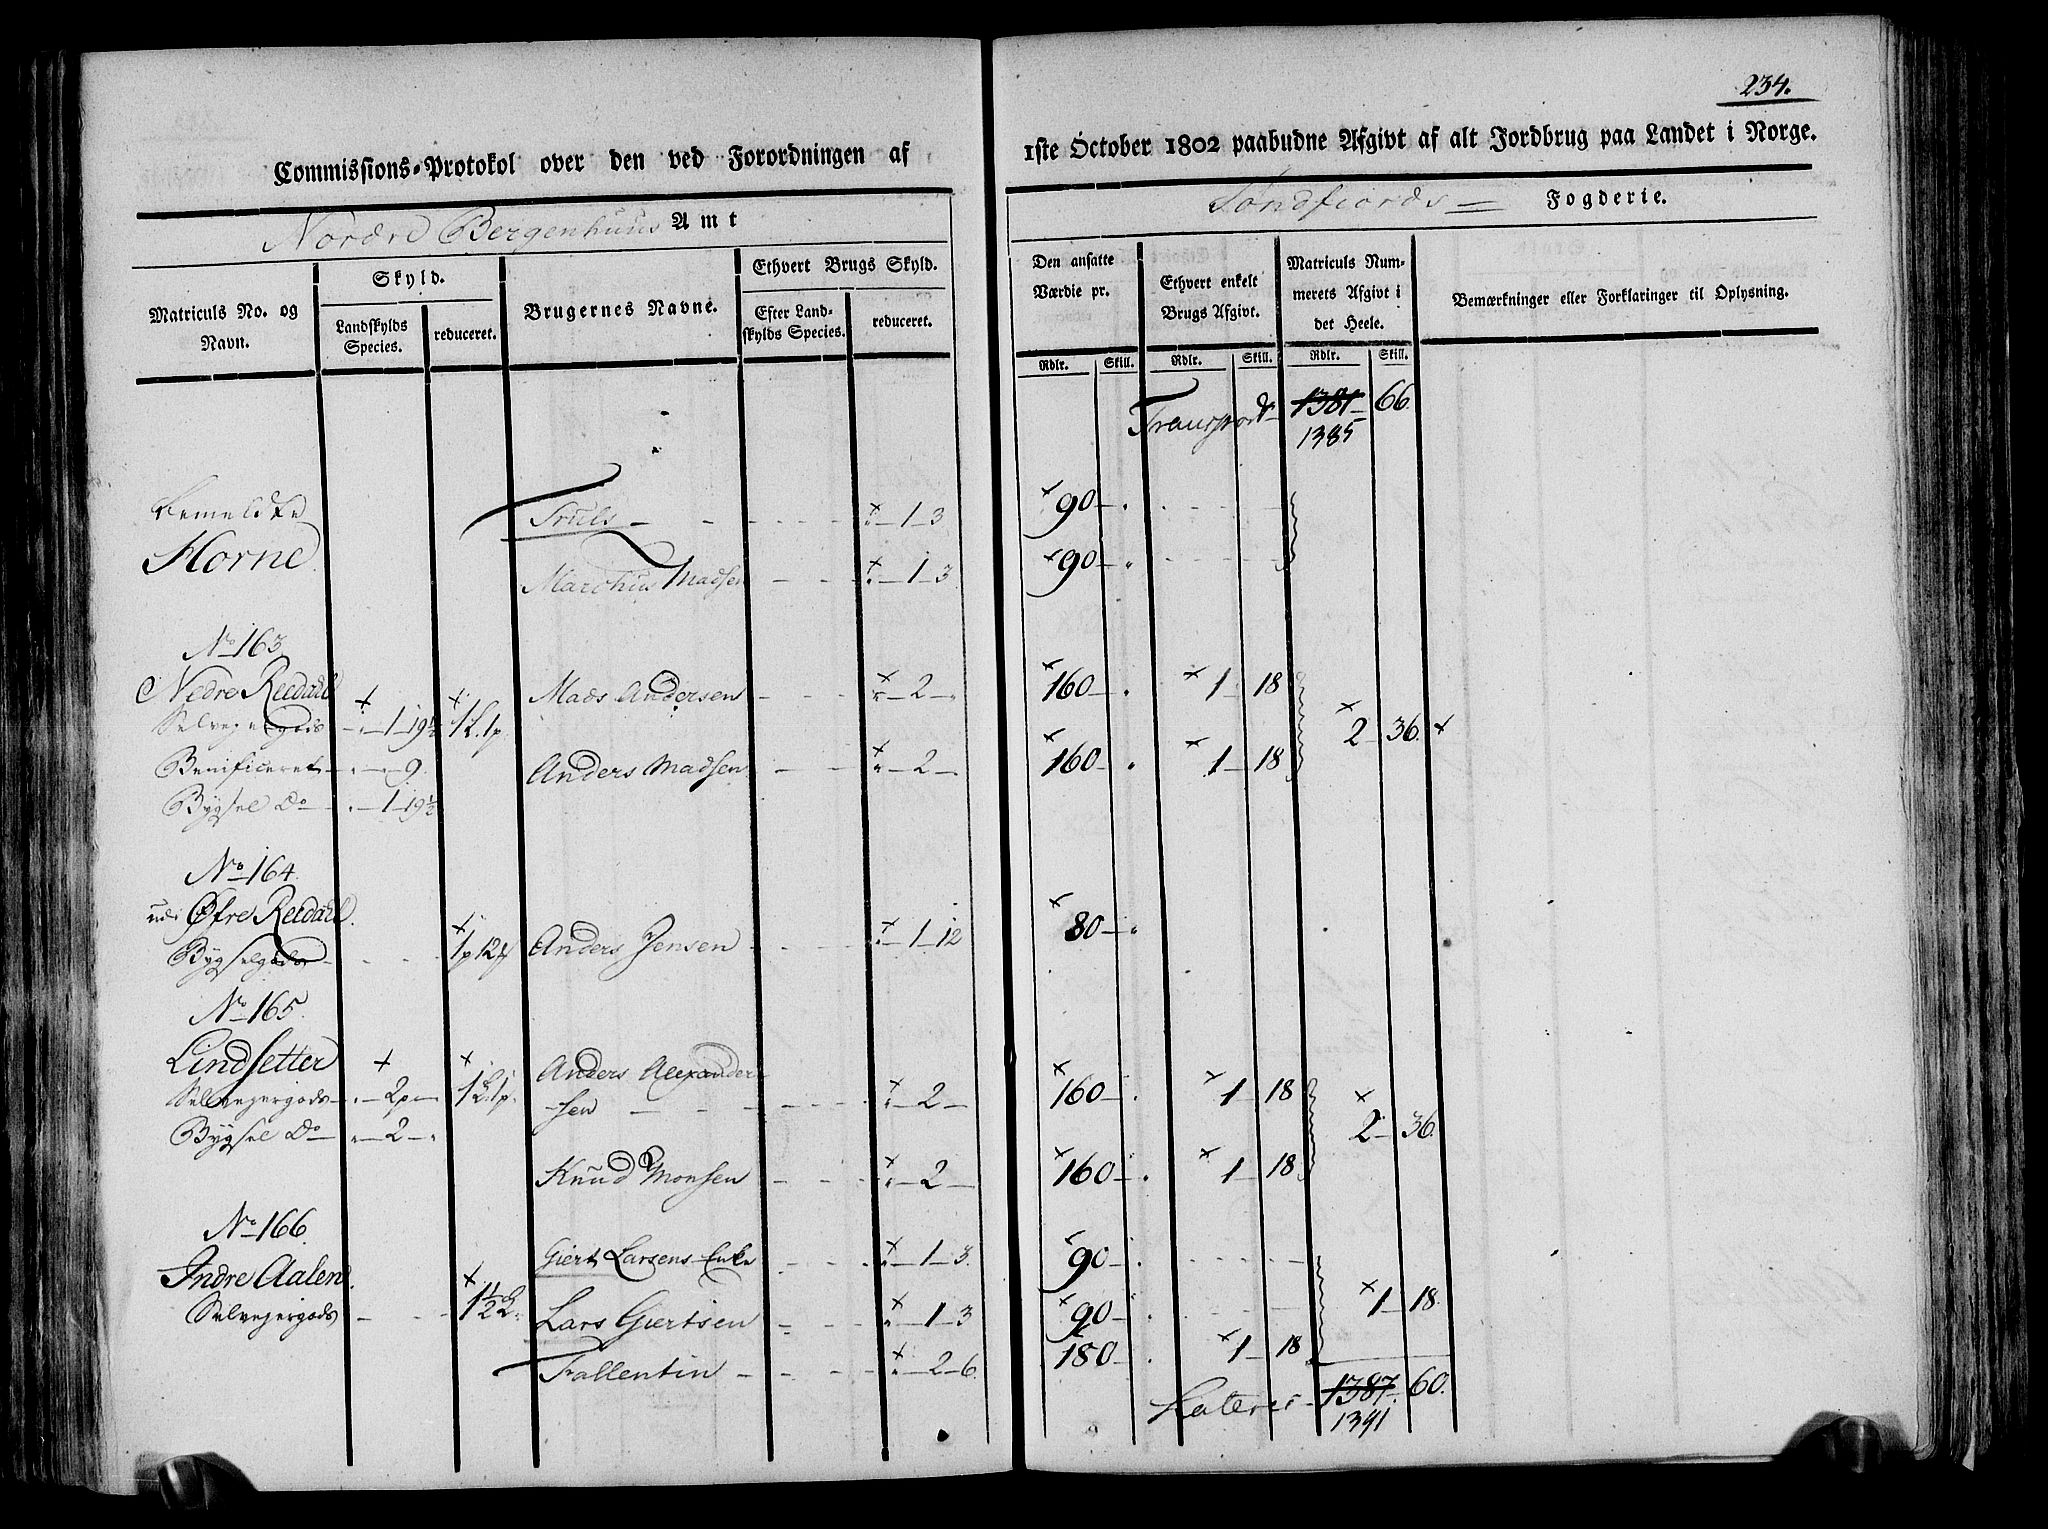 234.
Commissions-Protokol over den ved Forordningen af 1ste October 1802 paabudne Afgivt af alt Jordbrug paa Landet i Norge.
Nordre Bergenhuus Amt
Søndfiords Fogderie.
Matriculs No. og Navn.
Skyld.
Landskylds Species.
reduceret.
Brugernes Navne.
Ethvert Brugs Skyld.
Efter Landskylds Species.
reduceret.
Den ansatte Værdie pr.
Rdlr. Skill.
Ethvert enkelt Brugs Afgivt.
Rdlr. Skill.
Matriculs Nummerets Afgivt i det Heele.
Rdlr. Skill.
Bemærkninger eller Forklaringer til Oplysning.
Transport 1381 66.
1385
Bemeldte Truls - 1 - 3 90
Horne.
Marchus Madsen - 1 - 3 90
No 163
Nedre Reedahl Mads Andersen - 2 - 160 1 18
Selvejergods 1 - 19½ 1 L. 1 p. 2 36
Benificeret 9 Anders Madsen - 2 - 160 1 18
Bygsel Do 1 - 19½
No 164.
udi Øfre Reedahl.
Bygselgods 1 p 12 Anders Jensen - 1 - 12 80
No 165.
Lindsetter Anders Alexander
Selvejergods 2 p 1 L. 1 p. sen - 2 - 160 1 18
Bygsel Do 2 2 36.
Knud Monsen - 2 - 160 1 18
No 166.
Indre Aalen. Giert Larsens Enke - 1 - 3. 90
Selvejergods 1½ L. Lars Giertsen - 1 - 3 90 1 18.
Fallentin - 2 - 6. 180 1 18
Lateris 1387 60.
1391